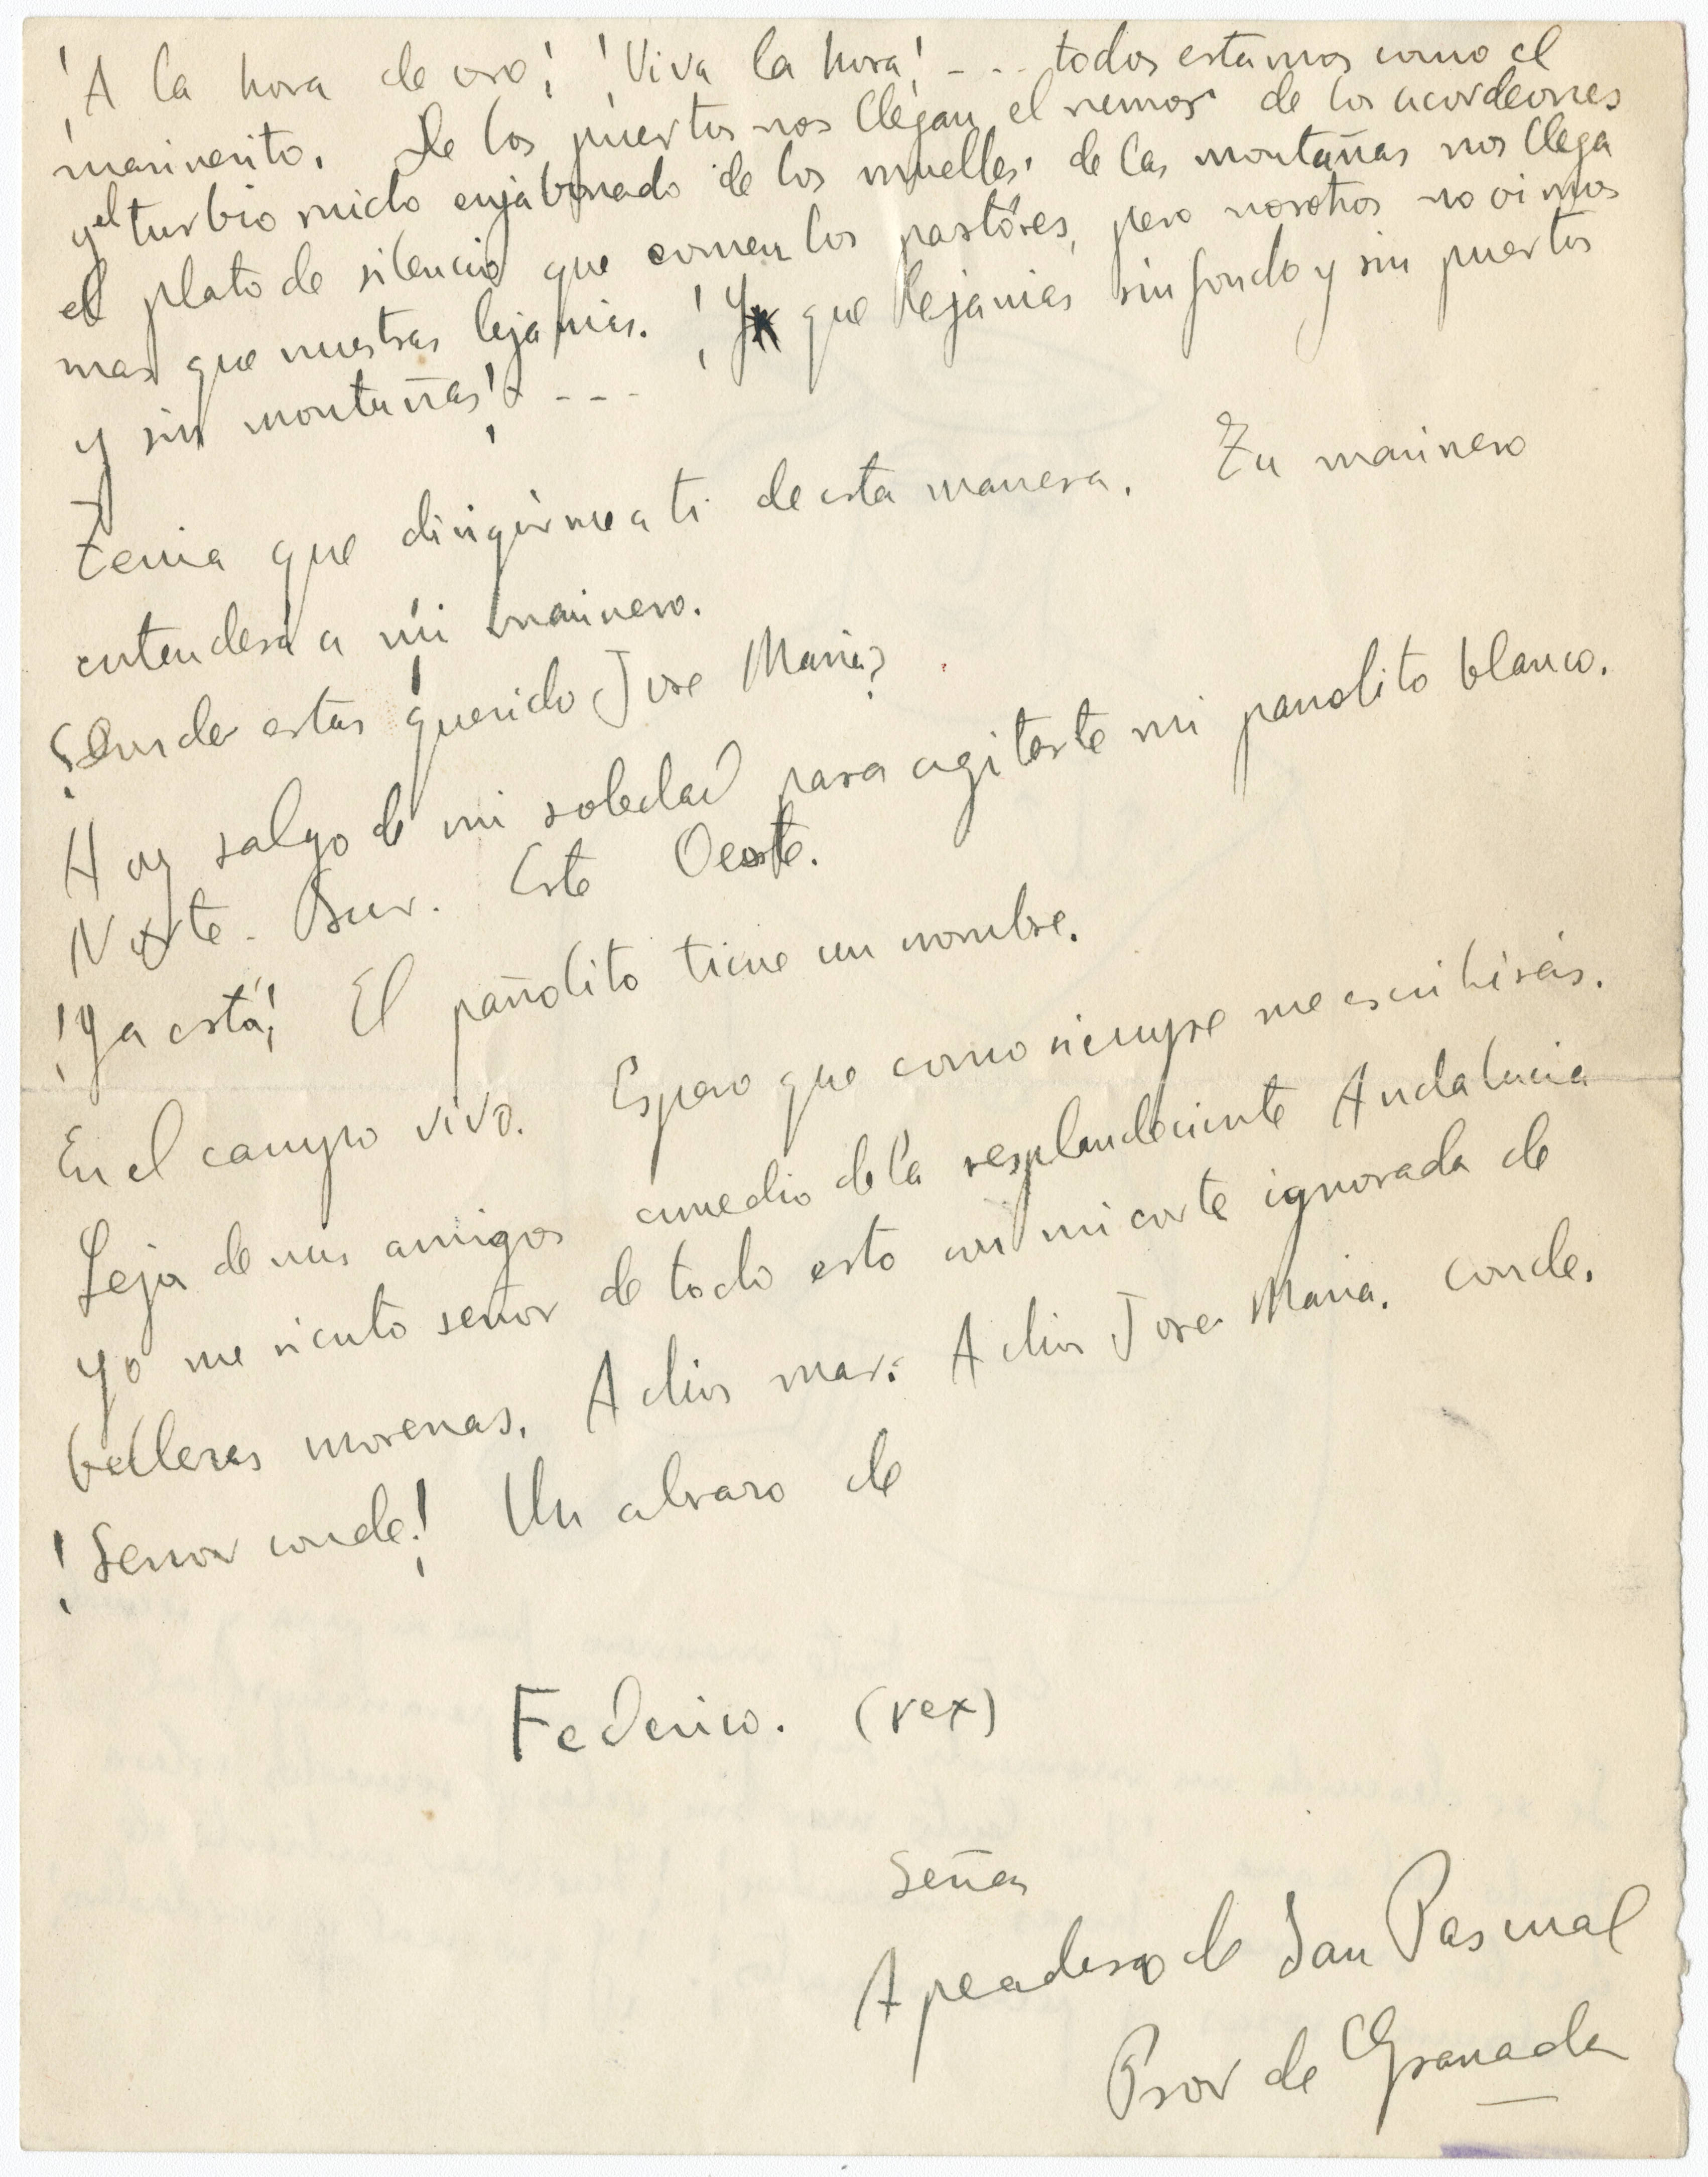 ¡A la hora de oro! ¡Viva la hora! - - - todos estamos como el
marinerito. De los puertos nos llegan el rumor de los acordeones
y el turbio ruido enjabonado de los muelles, de las montañas nos llega
el plato de silencio que comen los pastores, pero nosotros no oimos
mas que nuestras lejanias. ¡Y que lejanias sin fondo y sin puertos
y sin montañas! - - -
Tenia que dirigirme a ti de esta manera. Tu marinero
entenderá a mi marinero.
¿Donde estas querido Jose Maria?
Hoy salgo de mi soledad para agitarte mi pañolito blanco.
Norte. Sur. Este Oeste.
¡Ya está! El pañolito tiene un nombre.
En el campo vivo. Espero que como siempre me escribirás.
Lejos de mis amigos enmedio de la resplandeciente Andalucia
yo me siento señor de todo esto con mi corte ignorada de
belleres morenas. Adios mar. Adios Jose Maria. conde.
¡Señor conde! Un abrazo de
Federico. (rex)
Señas
Apeadero de San Pascual
Prov de Granada